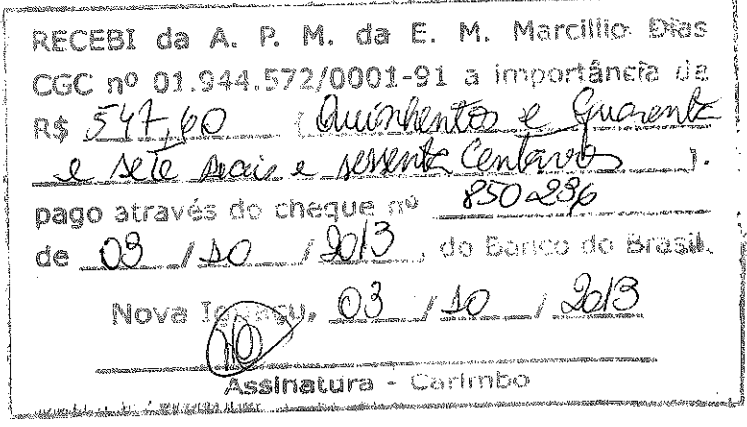 RECEBI da A. P. M. da E. M. Marcillio Dias
CGC nº 01.944.572/0001-91 a importância de
R$ 547,60 ( Quinhentos e Quarenta
e sete reais e sessenta Centavos ).
pago através do cheque nº 850236
de 03 / 10 / 2013, do Banco do Brasil.
Nova Iguaçu, 03 / 10 / 2013
Assinatura - Carimbo